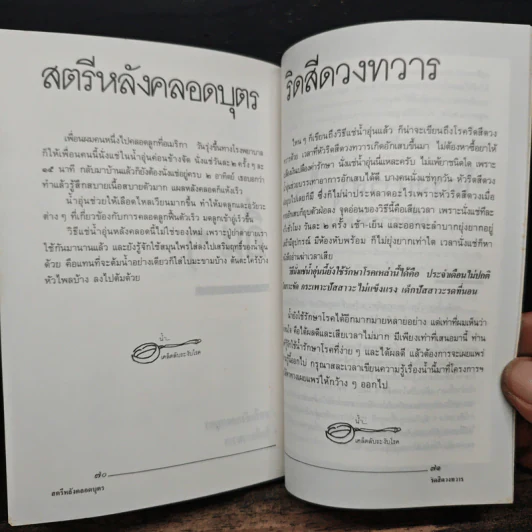 สตรีหลังคลอดบุตร
เพื่อนผมคนหนึ่งไปคลอดลูกที่อเมริกา วันรุ่งขึ้นทางโรงพยาบาล
ก็ให้เพื่อนคนนี้นั่งแช่ในน้ำอุ่นค่อนข้างจัด นั่งแช่วันละ ๒ ครั้ง ๆ ละ
๑๕ นาที กลับมาบ้านแล้วก็ยังต้องนั่งแช่อยู่ครบ ๒ อาทิตย์ เธอบอกว่า
ทำแล้วรู้สึกสบายเนื้อสบายตัวมาก แผลหลังคลอดก็แห้งเร็ว
น้ำอุ่นช่วยให้เลือดไหลเวียนมากขึ้น ทำให้มดลูกและอวัยวะ
ต่าง ๆ ที่เกี่ยวข้องกับการคลอดลูกฟื้นตัวเร็ว มดลูกเข้าอู่เร็วขึ้น
วิธีแช่น้ำอุ่นหลังคลอดนี้ไม่ใช่ของใหม่ เพราะปู่ย่าตายายเรา
ใช้กันมานานแล้ว และยังรู้จักใช้สมุนไพรใส่ลงไปเสริมฤทธิ์ของน้ำอุ่น
ด้วย คือแทนที่จะต้มน้ำอย่างเดียวก็ใส่ใบมะขามบ้าง ต้นตะไคร้บ้าง
หัวไพลบ้าง ลงไปต้มด้วย
น้ำ...
เคล็ดลับระงับโรค
๗๐
สตรีหลังคลอดบุตร
ริดสีดวงทวาร
ไหน ๆ ก็เขียนถึงวิธีแช่น้ำอุ่นแล้ว ก็น่าจะเขียนถึงโรคริดสีดวง
ด้วย เวลาที่หัวริดสีดวงทวารเกิดอักเสบขึ้นมา ไม่ต้องหาซื้อยาให้
เปลืองค่ารักษา นั่งแช่น้ำอุ่นนี่แหละครับ ไม่แพ้ยาชนิดใด เพราะ
บรรเทาอาการอักเสบได้ดี บางคนนั่งแช่ทุกวัน หัวริดสีดวง
ไปเลยก็มี ซึ่งก็ไม่น่าประหลาดอะไรเพราะหัวริดสีดวงเมื่อ
อักเสบก็ยุบตัวฝ่อลง จุดอ่อนของวิธีนี้คือเสียเวลา เพราะนั่งแช่ทีละ
วันละ ๒ ครั้ง เช้า-เย็น และออกจะลำบากยุ่งยากอยู่
มีอุปกรณ์ มีห้องหับพร้อม ก็ไม่ยุ่งยากเท่าใด เวลานั่งแช่ก็หา
อ่านฆ่าเวลาเสีย
วิธีแช่น้ำอุ่นนี้ยังใช้รักษาโรคเหล่านี้ได้คือ ประจำเดือนไม่ปกติ
กระเพาะปัสสาวะไม่แข็งแรง เด็กปัสสาวะรดที่นอน
น้ำยังใช้รักษาโรคได้อีกมากมายหลายอย่าง แต่เท่าที่ผมเห็นว่า
คือได้ผลดีและเสียเวลาไม่มาก มีเพียงเท่าที่เสนอมานี้ ท่าน
ใช้น้ำรักษาโรคที่ง่าย ๆ และได้ผลดี แล้วต้องการจะเผยแพร่
ออกไป กรุณาสละเวลาเขียนความรู้เรื่องน้ำนี้มาที่โครงการฯ
ทางเผยแพร่ให้กว้าง ๆ ออกไป
น้ำ...
เคล็ดลับระงับโรค
๗๑
ริดสีดวงทวาร